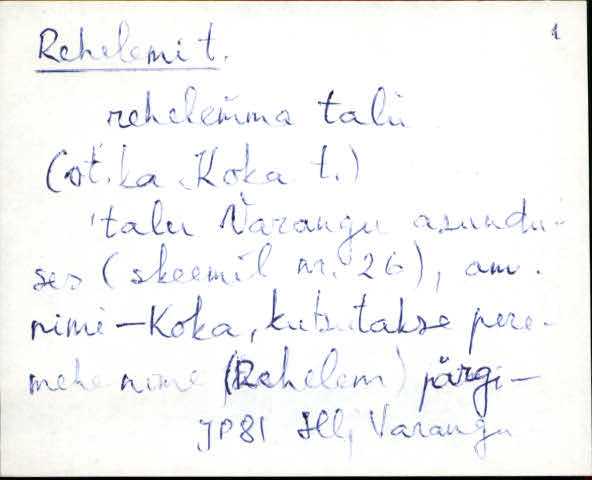 Rehelemi t. 1
rehelem̀ma talù
(ot. ka Koka t.)
'talu Varangu asundu-
ses (skeemil nr. 26), am.
nimi – Koka, kutsutakse pere-
mehe nime (Rehelem) järgi –
JP81 Hlj Varangu